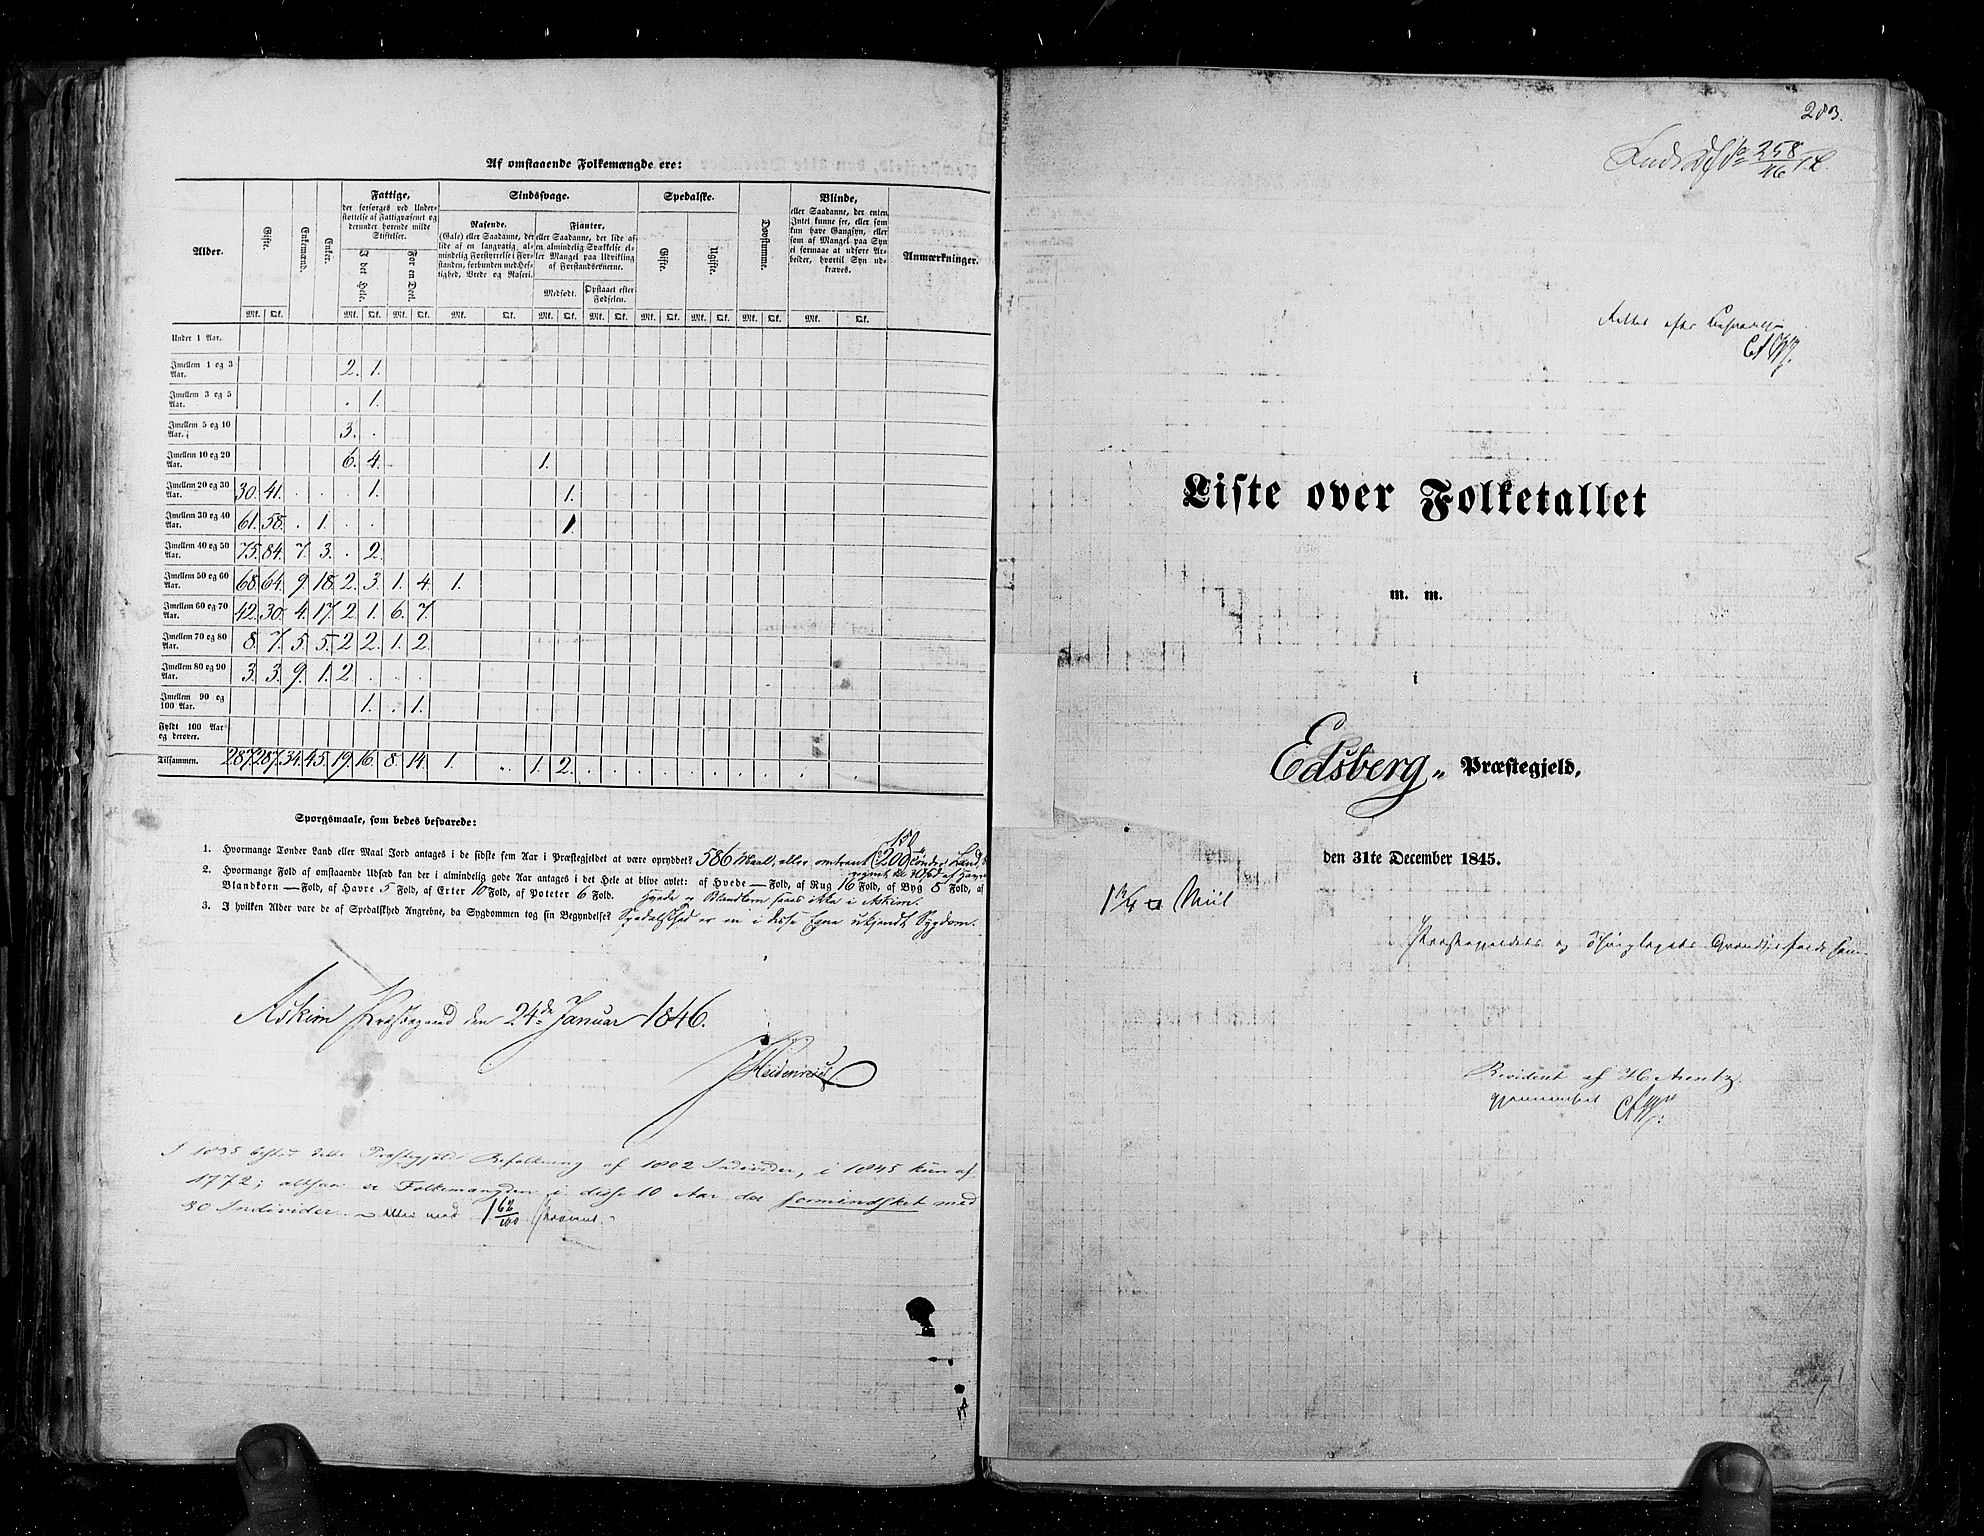 Af omstaaende Folkemængde ere:
Alder. | Gifte. | Enkemænd. | Enker. | Fattige, der forsørges ved Understøttelse af Fattigvæsenet og derunder hørende milde Stiftelser. | Sindssvage. | Spedalske. | Døvstumme. | Blinde, eller Saadanne, der enten Intet kunne see, eller som kun have Gangsyn, eller som af Mangel paa Syn ei formaae at udføre Arbeider, hvortil Syn udkræves. | Anmærkninger.
I det Hele. | For en Deel. | Rasende. (Gale) eller Saadanne, der lide af en langvarig, almindelig Forstyrrelse i Forstanden, forbunden med Heftighed, Vrede og Raseri. | Fjanter, eller Saadanne, der lide af en almindelig Svækkelse eller Mangel paa Udvikling af Forstandsevnerne. | Gifte. | Ugifte.
Medfødt. | Opstaaet efter Fødselen.
Mk. Qk. Mk. Qk. Mk. Qk. Mk. Qk. Mk. Qk. Mk. Qk. Mk. Qk. Mk. Qk. Mk. Qk. Mk. Qk.
Under 1 Aar.
Imellem 1 og 3 Aar. 2. 1.
Imellem 3 og 5 Aar. . 1.
Imellem 5 og 10 Aar. 3. .
Imellem 10 og 20 Aar. 6. 4. 1.
Imellem 20 og 30 Aar. 30. 41. . . . 1. 1.
Imellem 30 og 40 Aar. 61. 58. . 1. . . 1
Imellem 40 og 50 Aar. 75. 84. 7. 3. . 2.
Imellem 50 og 60 Aar. 68. 64. 9. 18. 2. 3. 1. 4. 1.
Imellem 60 og 70 Aar. 42. 30. 4. 17. 2. 1. 6. 7.
Imellem 70 og 80 Aar. 8. 7. 5. 5. 2 2. 1. 2.
Imellem 80 og 90 Aar. 3. 3. 9. 1. 2 . . .
Imellem 90 og 100 Aar. 1. . 1.
Fyldt 100 Aar og derover.
Tilsammen. 287. 287. 34. 45. 19. 16. 8. 14. 1. „ 1. 2. . . . . . . . . . .
Spørgsmaale, som bedes besvarede:
150
1. Hvormange Tønder Land eller Maal Jord antages i de sidste fem Aar i Præstegjeldet at være opryddet? 586 Maal, eller omtrent (200) Tønder Land
2. Hvormange Fold af omstaaende Udsæd kan der i almindelig gode Aar antages i det Hele at blive avlet: af Hvede — Fold, af Rug 16 Fold, af Byg 8 Fold, af
Blandkorn — Fold, af Havre 5 Fold, af Erter 10 Fold, af Poteter 6 Fold. Hvede og Blandkorn saaes ikke i Askim.
3. I hvilken Alder vare de af Spedalskhed Angrebne, da Sygdommen tog sin Begyndelse? Spedalskhed er en i disse Egne ukjendt Sygdom.
Askim Præstegaard den 24de Januar 1846.
Heidenreich
I 1835 bestod dette Præstegjelds Befolkning af 1802 Individer, i 1845 kun af
1772; altsaa er Folkemængden i disse 10 Aar det formindsket med
30 Individer. eller med 1 68/100 Procent.
283.
258
16
Rettet efter
Liste over Folketallet
m. m.
i
Edsberg „ Præstegjeld,
den 31te December 1845.
1 3/4 □ Miil
Præstegjeldets og Thinglagets Grændser falde
Revideret af H Arentz.
gjennemseet